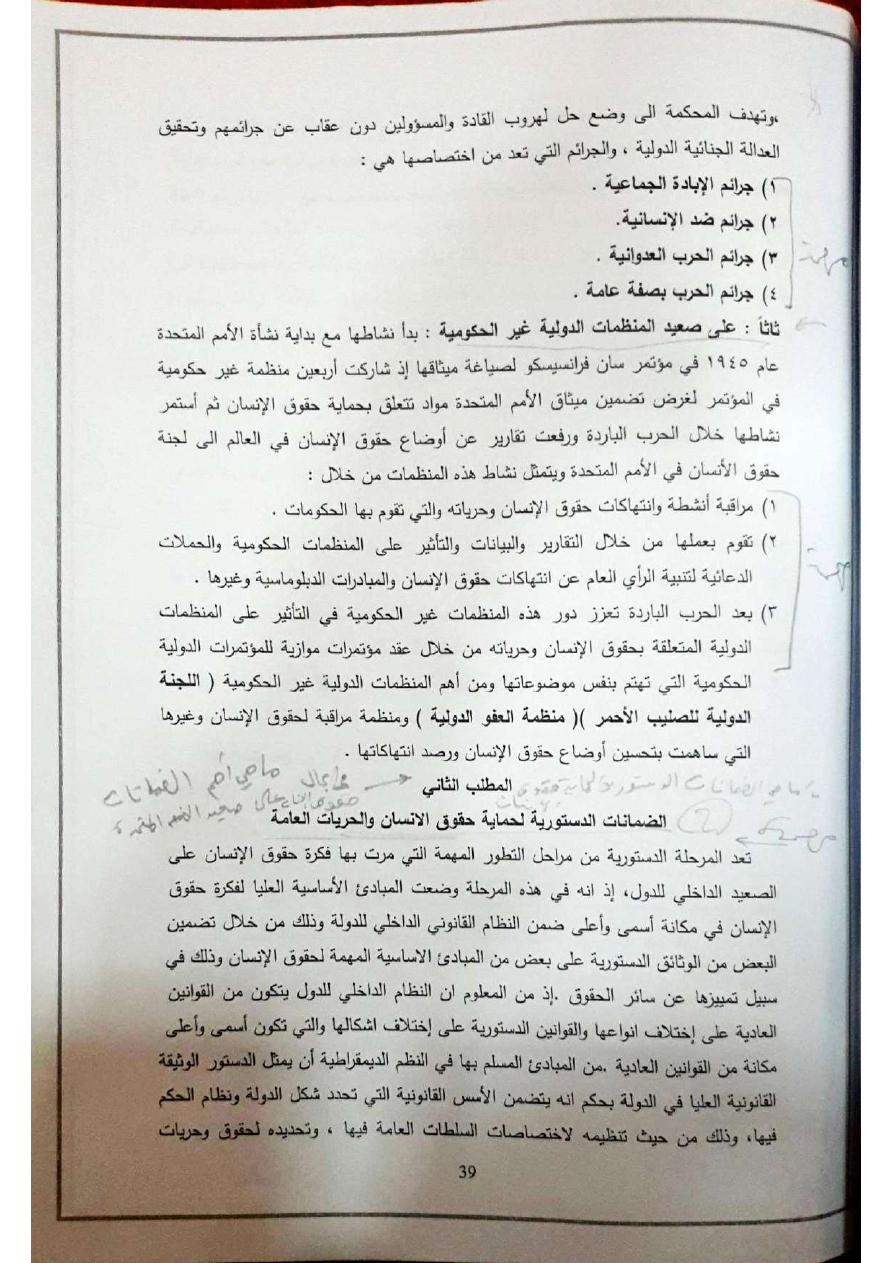 ،وتهدف المحكمة الى وضع حل لهروب القادة والمسؤولين دون عقاب عن جرائمهم وتحقيق
العدالة الجنائية الدولية ، والجرائم التي تعد من اختصاصها هي :
١) جرائم الإبادة الجماعية .
٢) جرائم ضد الإنسانية.
٣) جرائم الحرب العدوانية .
مهمة
٤) جرائم الحرب بصفة عامة .
ثاثاً : على صعيد المنظمات الدولية غير الحكومية : بدأ نشاطها مع بداية نشأة الأمم المتحدة
عام ١٩٤٥ في مؤتمر سان فرانسيسكو لصياغة ميثاقها إذ شاركت أربعين منظمة غير حكومية
في المؤتمر لغرض تضمين ميثاق الأمم المتحدة مواد تتعلق بحماية حقوق الإنسان ثم أستمر
نشاطها خلال الحرب الباردة ورفعت تقارير عن أوضاع حقوق الإنسان في العالم الى لجنة
حقوق الأنسان في الأمم المتحدة ويتمثل نشاط هذه المنظمات من خلال :
١) مراقبة أنشطة وانتهاكات حقوق الإنسان وحرياته والتي تقوم بها الحكومات .
٢) تقوم بعملها من خلال التقارير والبيانات والتأثير على المنظمات الحكومية والحملات
الدعائية لتنبية الرأي العام عن انتهاكات حقوق الإنسان والمبادرات الدبلوماسية وغيرها .
٣) بعد الحرب الباردة تعزز دور هذه المنظمات غير الحكومية في التأثير على المنظمات
الدولية المتعلقة بحقوق الإنسان وحرياته من خلال عقد مؤتمرات موازية للمؤتمرات الدولية
الحكومية التي تهتم بنفس موضوعاتها ومن أهم المنظمات الدولية غير الحكومية ( اللجنة
الدولية للصليب الأحمر )( منظمة العفو الدولية ) ومنظمة مراقبة لحقوق الإنسان وغيرها
التي ساهمت بتحسين أوضاع حقوق الإنسان ورصد انتهاكاتها .
ما هي الضمانات الدستورية لحماية حقوق
المطلب الثاني
ما هي أهم الضمانات
الضمانات الدستورية لحماية حقوق الانسان والحريات العامة
على صعيد
تعد المرحلة الدستورية من مراحل التطور المهمة التي مرت بها فكرة حقوق الإنسان على
الصعيد الداخلي للدول، إذ انه في هذه المرحلة وضعت المبادئ الأساسية العليا لفكرة حقوق
الإنسان في مكانة أسمى وأعلى ضمن النظام القانوني الداخلي للدولة وذلك من خلال تضمين
البعض من الوثائق الدستورية على بعض من المبادئ الاساسية المهمة لحقوق الإنسان وذلك في
سبيل تمييزها عن سائر الحقوق .إذ من المعلوم ان النظام الداخلي للدول يتكون من القوانين
العادية على إختلاف انواعها والقوانين الدستورية على إختلاف اشكالها والتي تكون أسمى وأعلى
مكانة من القوانين العادية .من المبادئ المسلم بها في النظم الديمقراطية أن يمثل الدستور الوثيقة
القانونية العليا في الدولة بحكم انه يتضمن الأسس القانونية التي تحدد شكل الدولة ونظام الحكم
فيها، وذلك من حيث تنظيمه لاختصاصات السلطات العامة فيها ، وتحديده لحقوق وحريات
39